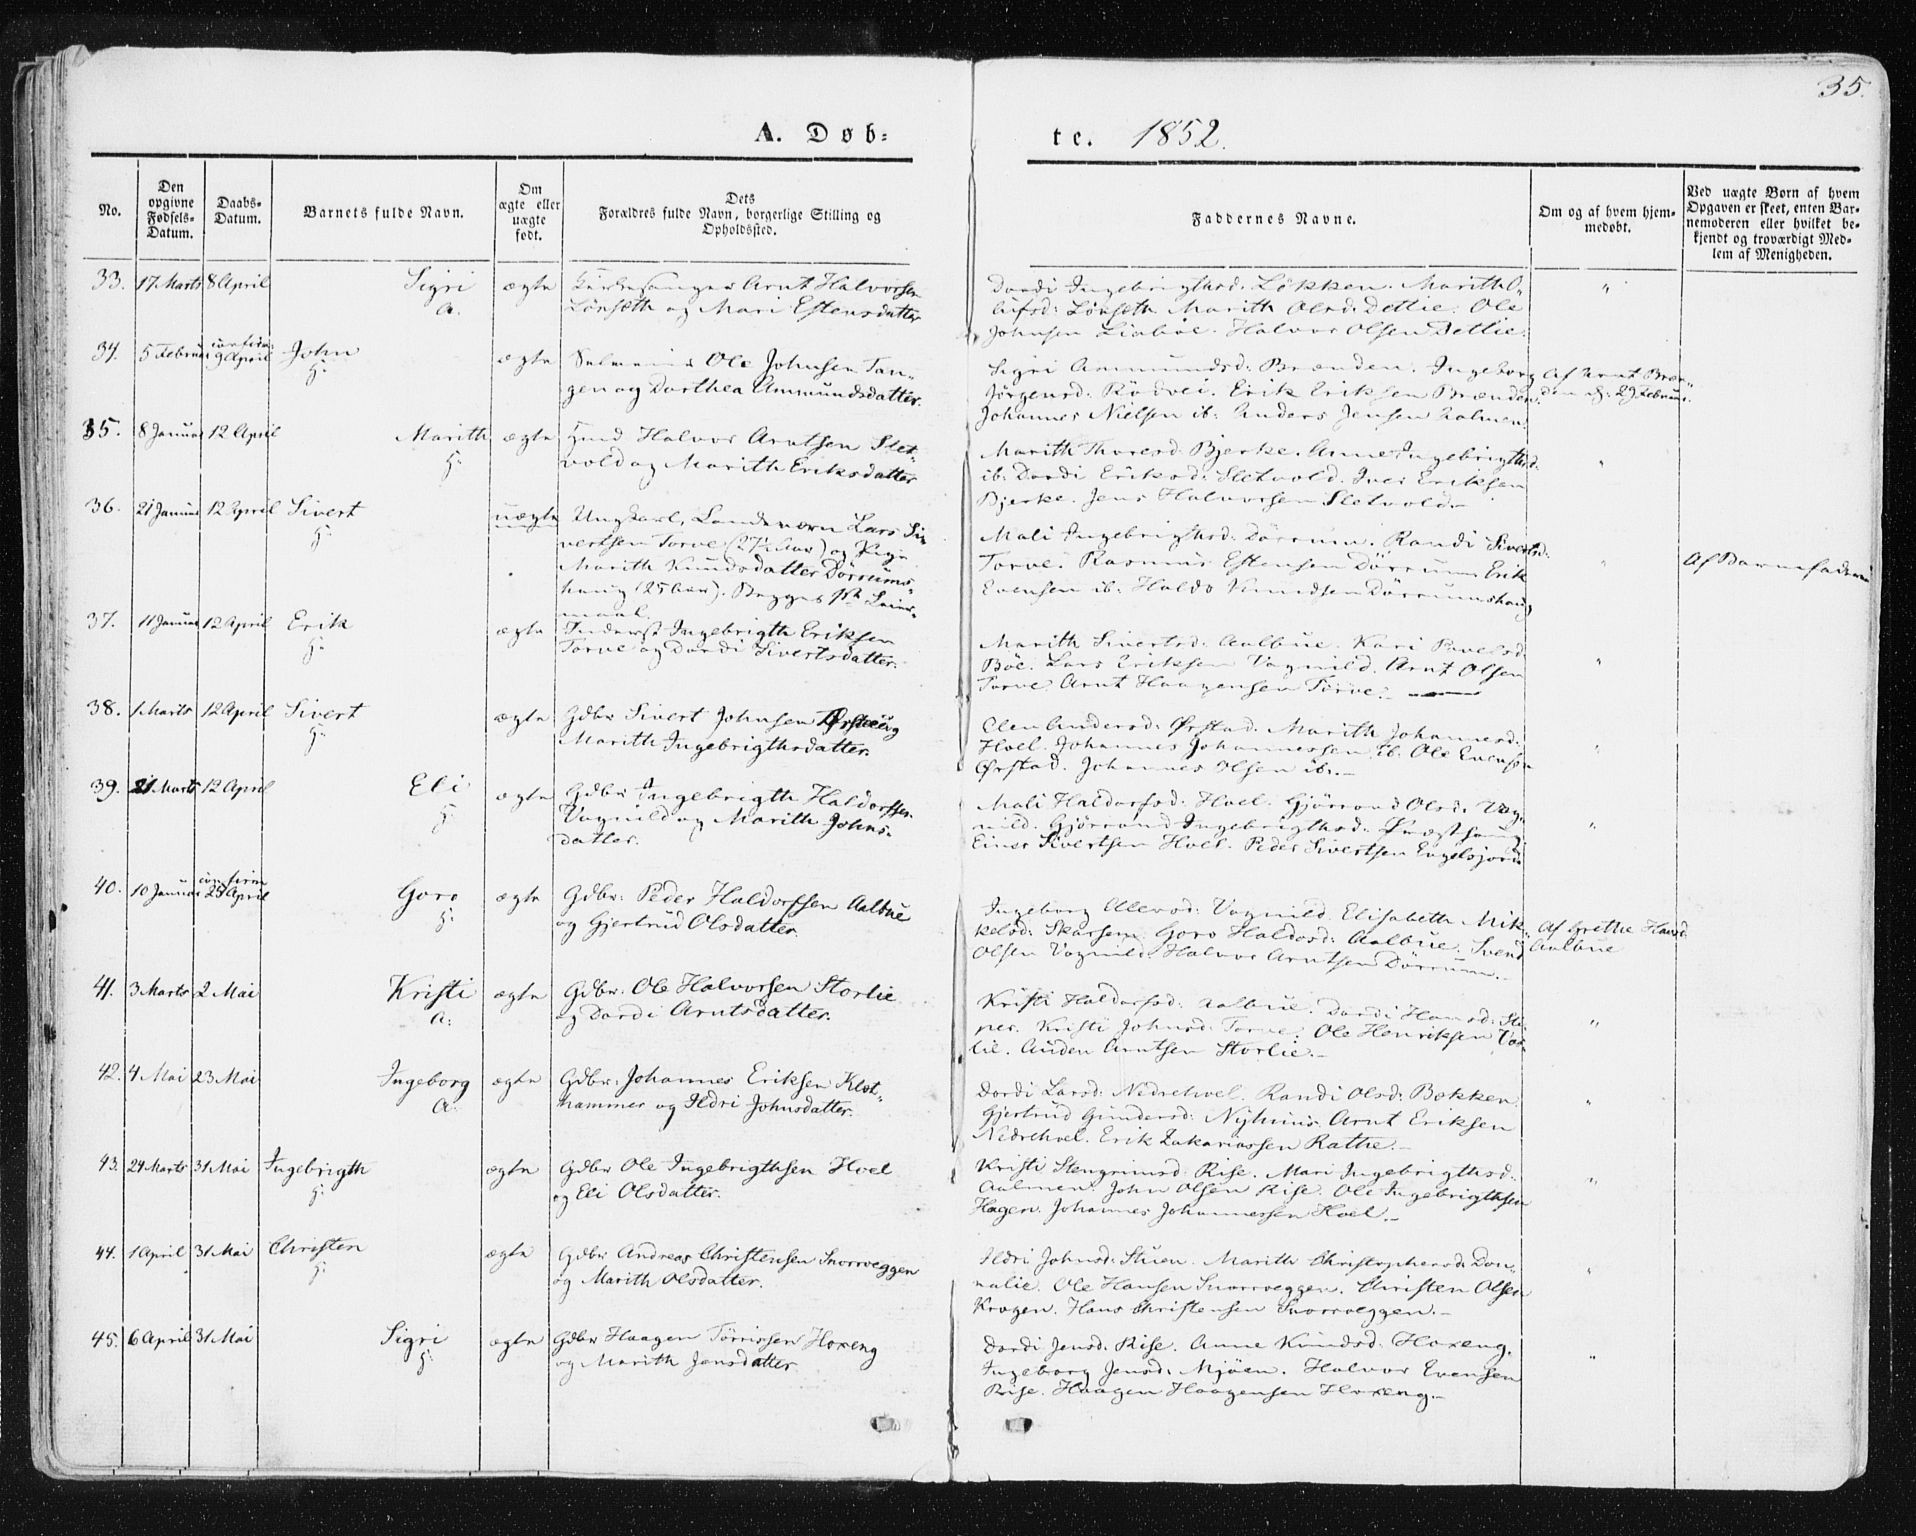 35.
A. Døb-
te. 1852.
No.
Den opgivne Fødsels-Datum.
Daabs-Datum.
Barnets fulde Navn.
Om ægte eller uægte født.
Dets
Forældres fulde Navn, borgerlige Stilling og
Opholdssted.
Faddernes Navne.
Om og af hvem hjem-
medøbt.
Ved uægte Børn af hvem
Opgaven er skeet, enten Bar-
nemoderen eller hvilket be-
kjendt og troværdigt Med-
lem af Menigheden.
33. 17 Marts 8 April Sigri ægte Kirkesanger Arnt Halvorsen
A. Lönseth og Mari Estensdatter
Dordi Ingebrigthsd: Løkken. Marith O-
lufsd: Lönseth Marith Olsd: Dettlie. Ole
Johnsen Liaböe. Halvor Olsen Dettlie.
34. 5 Februar confirm: 9 April John ægte Ole Johnsen Tan-
H: gen og Dorthea Ammundsdatter.
Sigri Ammundsd: Brænden. Ingeborg
Jörgensd: Rödvei. Erik Eriksen Brænden.
Johannes Nielsen ib: Anders Jensen Aalmen.
Af Arnt Bræn-
den d: 29 Februar.
35. 8 Januar 12 April Marith ægte Halvor Arntsen Slet-
H: vold og Marith Eriksdatter
Marith Thoresd: Bjerke. Anne Ingebrigthsd:
ib: Dordi Eriksd: Sletvold. Iver Eriksen
Bjerke. Jens Halvorsen Sletvold.-
36. 21 Januar 12 April Sivert uægte Ungkarl, Landeværn Lars Si-
H: vertsen Torve (27½ Aar) og Pige
Marith Knudsdatter Dörrums-
haug (25 Aar). Begges 1ste Leier-
maal.
Mali Ingebrigthsd: Dörrum. Randi Sivertsd:
Torve. Rasmus Estensen Dörrum. Erik
Evensen ib: Haldo Knudsen Dörrumshaug
Af Barnefaderen
37. 11 Januar 12 April Erik ægte Inderst Ingebrigth Eriksen
H: Torve og Dordi Sivertsdatter.
Marith Sivertsd: Aalbue. Kari Povelsd:
Böe. Lars Eriksen Vognild. Arnt Olsen
Torve. Arnt Haagensen Torve.
38. 1 Marts 12 April Sivert ægte Gdbr Sivert Johnsen Ørstad og
H: Marith Ingebrigthsdatter.
Olen Andersd: Ørstad. Marith Johannesd:
Hoel. Johannes Johannessen ib: Ole Evensen
Ørstad. Johannes Olsen ib:-
39. 21 Marts 12 April Eli ægte Gdbr Ingebrigth Haldorssen
H: Vognild og Marith Johns-
datter.
Mali Haldorsd: Hoel. Gjörrond Olsd: Vog-
nild. Gjörrond Ingebrigthsd: Præsthaug
Einer Sivertsen Hoel. Peder Sivertsen Engelsjord
40. 10 Januar confirm 25 April Goro ægte Gdbr: Peder Haldorssen Aalbue
H: og Gjertrud Olsdatter.
Ingeborg Olevsd: Vognild. Elisabeth Mik-
kelsd: Skarsem. Goro Haldosd: Aalbue. Svend
Olsen Vognild. Halvor Arntsen Dörrum.-
Af Grethe Havsd:
Aalbue
41. 3 Marts 2 Mai Kristi ægte Gdbr: Ole Halvorsen Storlie
A: og Dordi Arntsdatter.
Kristi Haldorsd: Aalbue. Dordi Hansd: Sli-
per. Kristi Johnsd: Torve. Ole Henriksen Vor-
lie. Auden Arntsen Storlie.-
42. 4 Mai 23 Mai Ingeborg ægte Gdbr: Johannes Eriksen Klet-
A. hammer og Ildri Johnsdatter.
Dordi Larsd: Nedrehoel. Randi Olsd: Bakken
Gjertrud Gundersd: Nyhuus. Arnt Eriksen
Nedrehoel. Erik Zakariassen Rathe.-
43. 24 Marts 31 Mai Ingebrigth ægte Gdbr Ole Ingebrigthsen Hoel
H: og Eli Olsdatter.
Kristi Stengrimsd: Rise. Mari Ingebrigthsd:
Aalmen. John Olsen Rise. Ole Ingebrigthsen
Hagen. Johannes Johannessen Hoel.-
44. 1 April 31 Mai Christen ægte Gdbr Andreas Christensen Snorroeggen
H: og Marith Olsdatter.
Ildri Johnsd: Stuen. Marith Christophersd: Don-
nalie. Ole Hansen Snorroeggen. Christen Olsen
Krogen. Hans Christensen Snorroeggen.-
45. 6 April 31 Mai Sigri ægte Gdbr Haagen Törrissen Hoxeng
H: og Marith Jensdatter
Dordi Jensd: Rise. Anne Knudsd: Hoxeng.
Ingeborg Jensd: Mjöen. Halvor Evensen
Rise. Haagen Haagensen Hoxeng.-